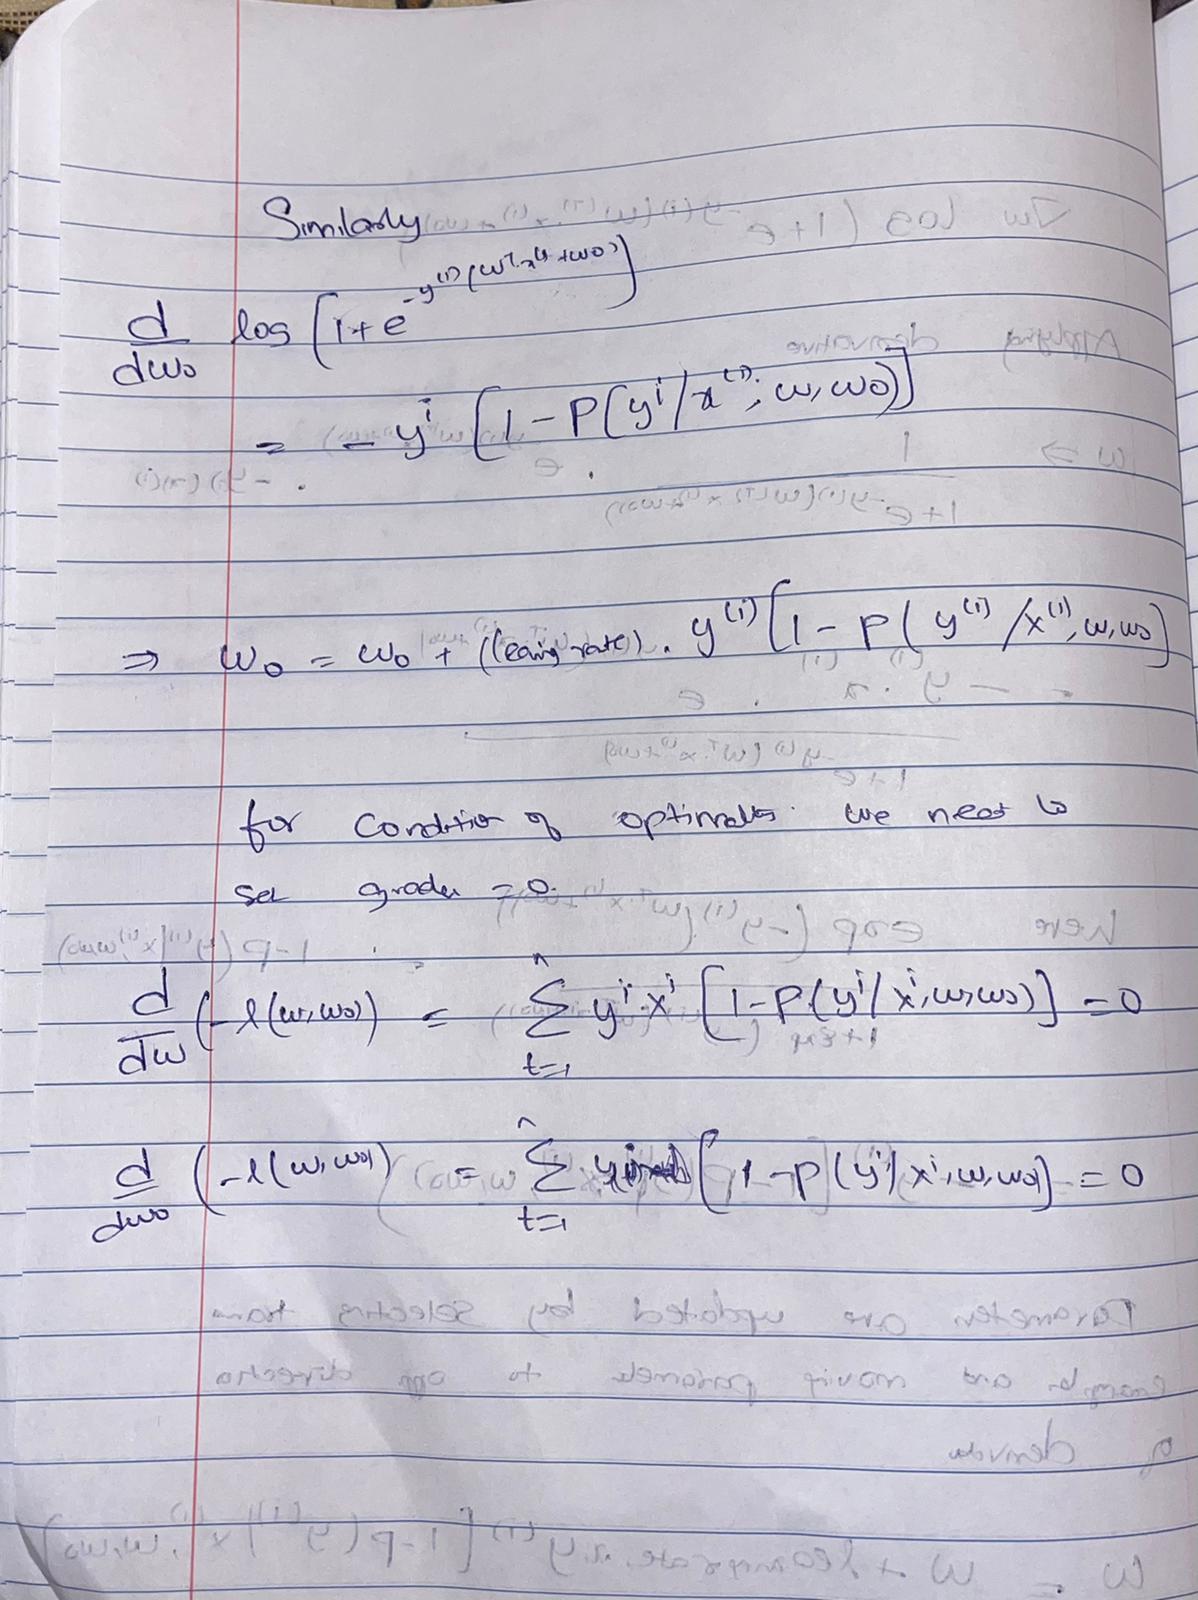 Similarly
d/dw₀ log [1+e^{-y^{(i)}(wᵀ.x^{(i)}+w₀)}]
= -yⁱ [1-P(yⁱ/x^{(i)}; w,w₀)]
⇒ w₀ = w₀ + (learing rate). y^{(i)} [1-P(y^{(i)}/x^{(i)}, w,w₀)]
for condition of we need to
set = 0.
d/dw (-l(w,w₀)) = Σ_{t=1}^{n} yⁱ.xⁱ [1-P(yⁱ/xⁱ,w,w₀)] = 0
d/dw₀ (-l(w,w₀)) = Σ_{t=1}^{n} yⁱ [1-P(yⁱ/xⁱ,w,w₀)] = 0